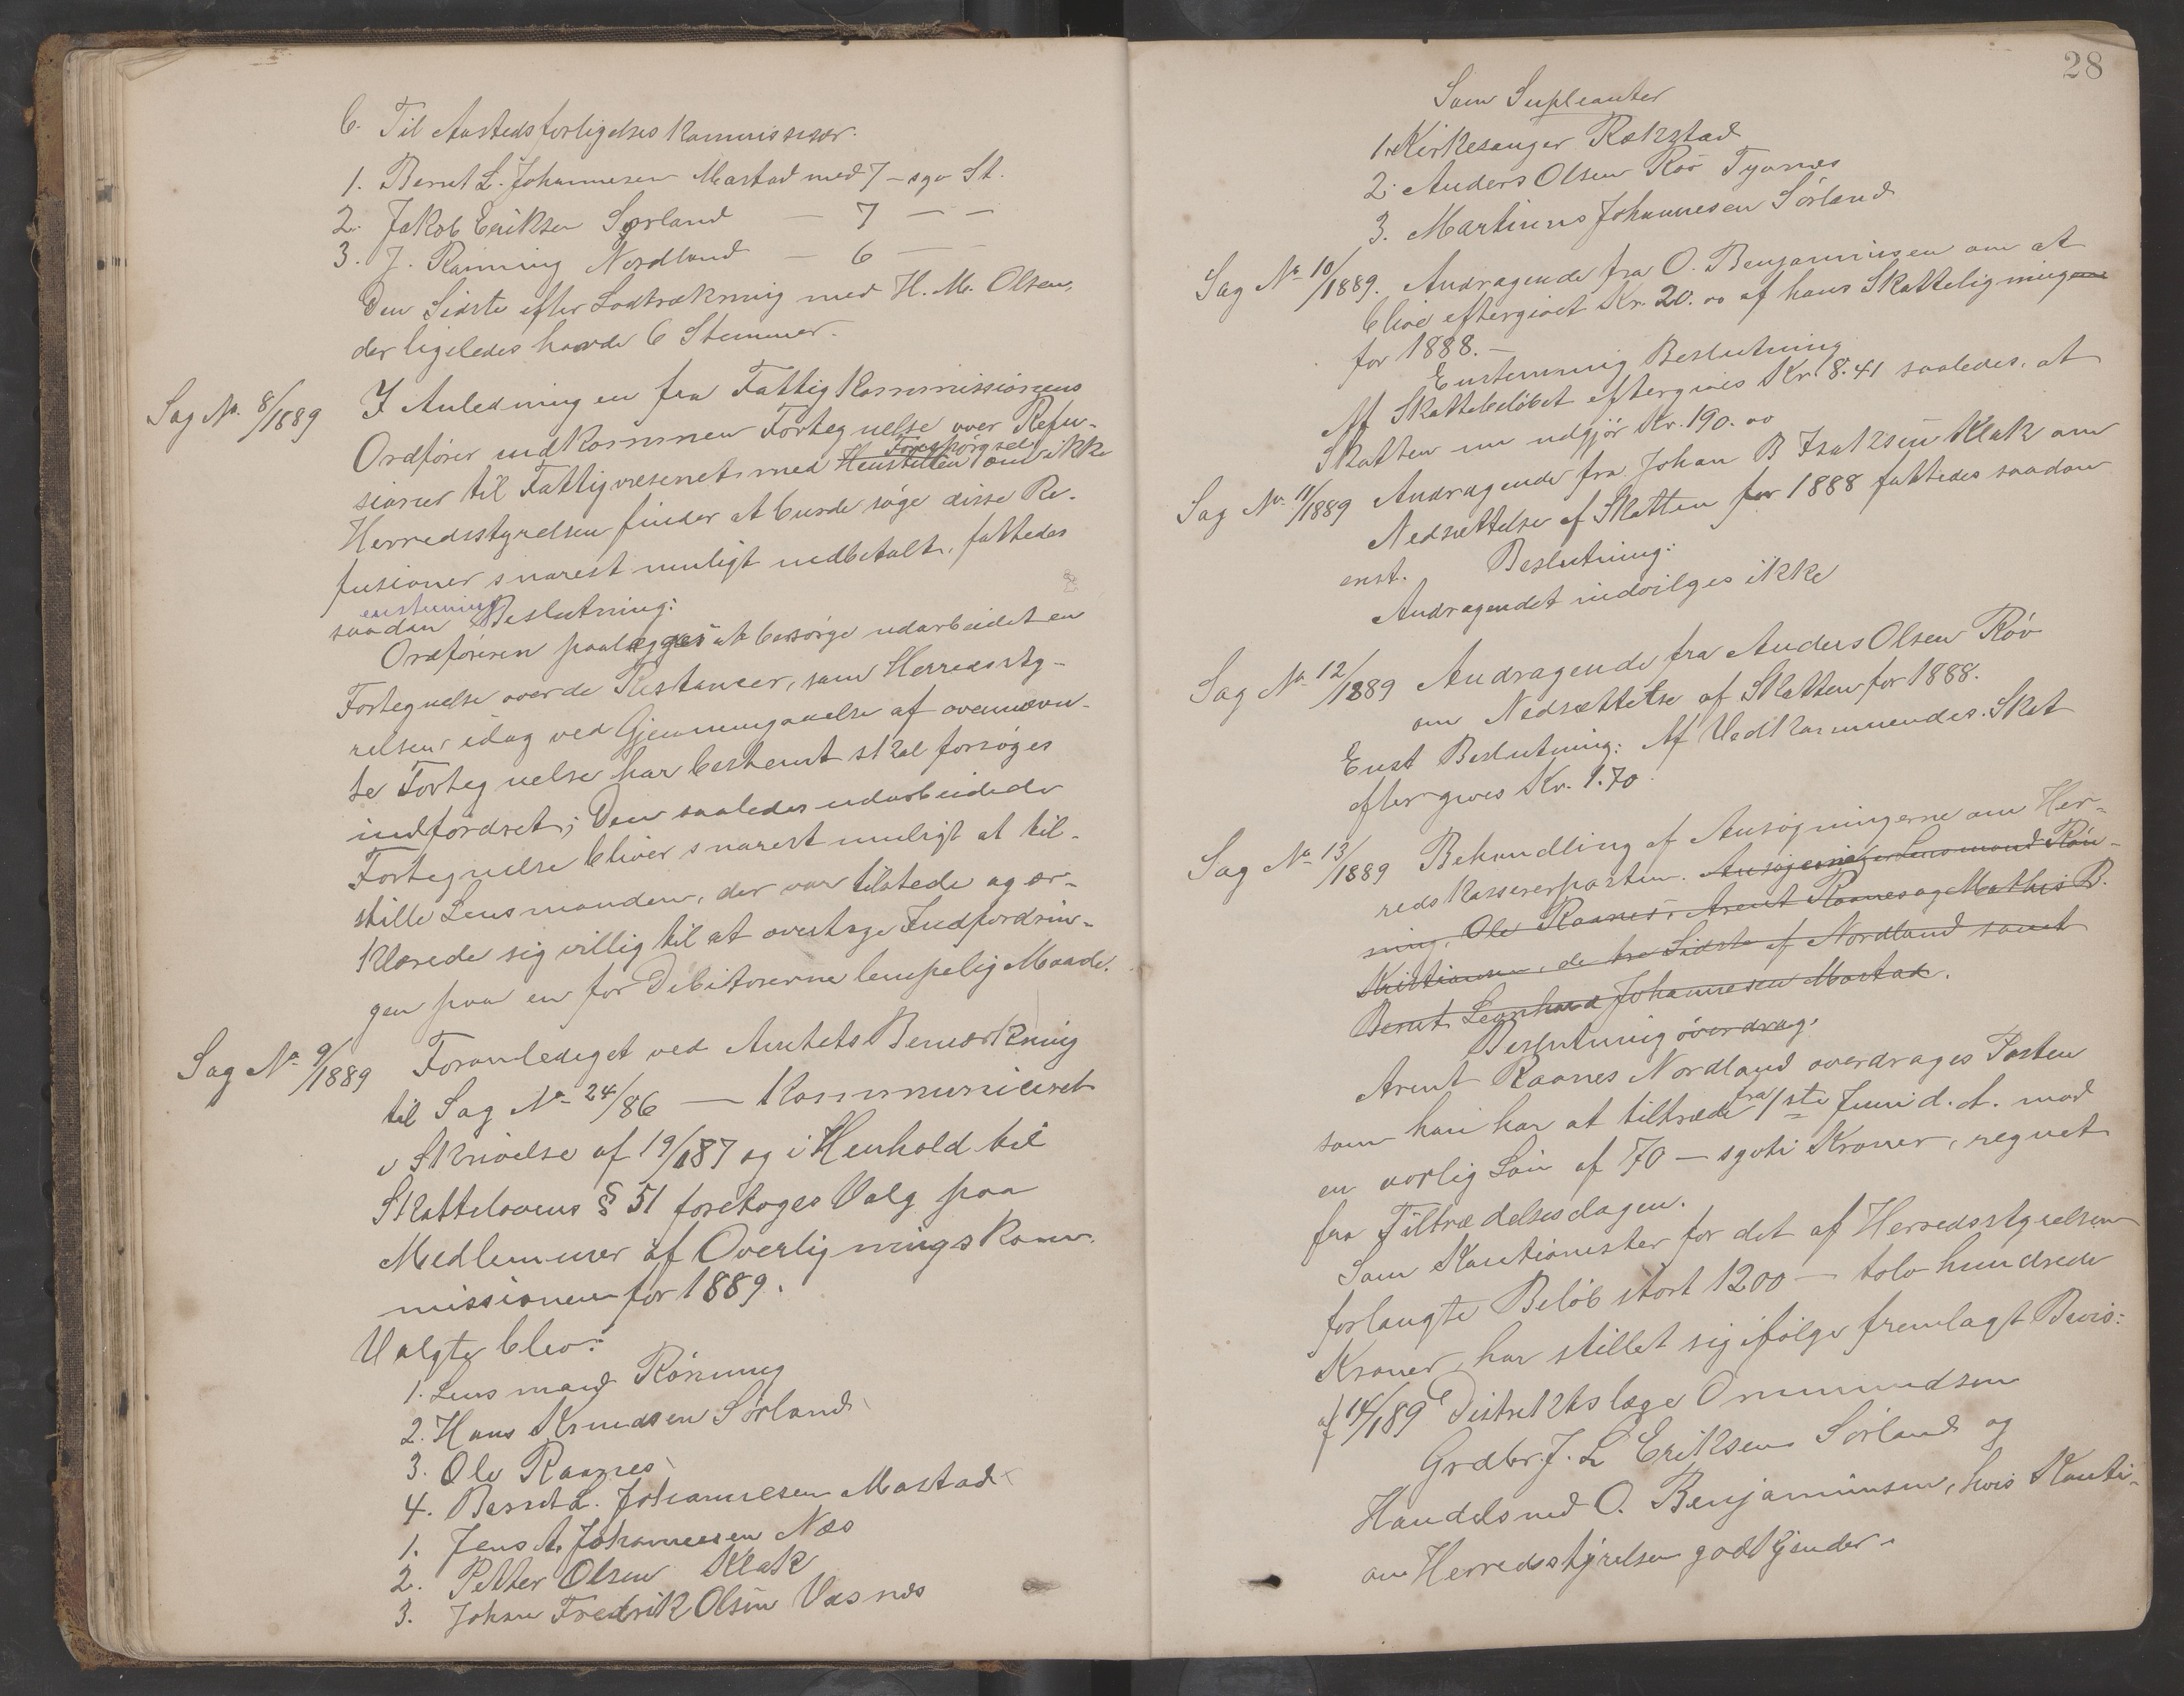 6. Til Aastedsforligelses kommissær.
1. Bernt L. Johannesen Mastad med 7 – syv St.
2. Jakob Eriksen Sørland — 7 — —
3. J. Rønning Nordland — 6 — —
Den Sidste efter Lodtrækning med H. M. Olsen,
der ligeledes havde 6 Stemmer.
Sag No. 8/1889 I Anledning en fra Fattigkommissionens
Ordfører indkommen Fortegnelse over Refu-
sioner til Fattigvæsenet med Henstillen Forespørgsel om ikke
Herredsstyrelsen finder at burde søge disse Re-
fusioner snarest muligt indbetalt, fattedes
saadan enstemmig Beslutning:
Ordføreren paalægges at besørge udarbeidet en
Fortegnelse over de Restancer, som Herredssty-
relsen idag ved Gjennemgaaelse af ovennævn-
te Fortegnelse har bestemt skal forsøges
indfordret; Den saaledes udarbeidede
Fortegnelse bliver snarest muligt at til-
stille Lensmanden, der var tilstede og er-
klærede sig villig til at overtage Indfordrin-
gen paa en for Debitorerne lempelig Maade.
Sag No 9/1889 Foranlediget ved Amtets Bemærkning
til Sag No 24/86 — Kommuniceret
i Skrivelse af 19/1 87 og i Henhold til
Skattelovens § 51 foretoges Valg paa
Medlemmer af Overligningskom-
missionen for 1889.
Valgte blev:
1. Lensmand Rønning
2. Hans Knudsen Sørland
3. Ole Raanes
4. Bernt L. Johannesen Mastad
1. Jens A. Johannesen Næs
2. Petter Olsen Klak
3. Johan Fredrik Olsen Værnæs
28
Som Supleanter
1. Kirkesanger Rækstad
2. Anders Olsen Røv Tyvnæs
3. Martinus Johannesen Sørland
Sag No 10/1889. Andragende fra O. Benjaminsen om at
blive eftergivet Kr. 20.00 af hans Skatteligningen
for 1888. —
Enstemmig Beslutning
Af Skattebeløbet eftergives Kr. 8.41 saaledes, at
Skatten nu udgjør Kr. 190.00
Sag No 11/1889 Andragende fra Johan B Isaksen Klak om
Nedsættelse af Skatten for 1888 fattedes saadan
enst. Beslutning:
Andragendet indvilges ikke
Sag No 12/1889 Andragende fra Anders Olsen Røv
om Nedsættelse af Skatten for 1888.
Enst Beslutning: Af Vedkommendes Skat
eftergives Kr. 1.70
Sag No 13/1889 Behandling af Ansøgningerne om Her-
redskassererposten. Ansøgere er Lensmand Røn-
ning, Ole Raanes, Arent Raanes og Mathis B.
Kristiansen, de tre Sidste af Nordland samt
Bernt Leonhard Johannesen Mostad.
Beslutning overdrag.
Arent Raanes Nordland overdrages Posten
som han har at tiltræde fra 1ste Juni d. A. mod
en aarlig Løn af 70 — sytti Kroner, regnet
fra Tiltrædelsesdagen.
Som Kautionister for det af Herredsstyrelsen
forlangte Beløb stort 1200 — tolv hundrede
Kroner, har stillet sig ifølge fremlagt Bevis:
af 14/1 89 Distriktslæge Ommundsen
Grdbr. J. L Eriksen Sørland og
Handelsmd O. Benjaminsen, hvis Kauti-
on Herredsstyrelsen godkjender.